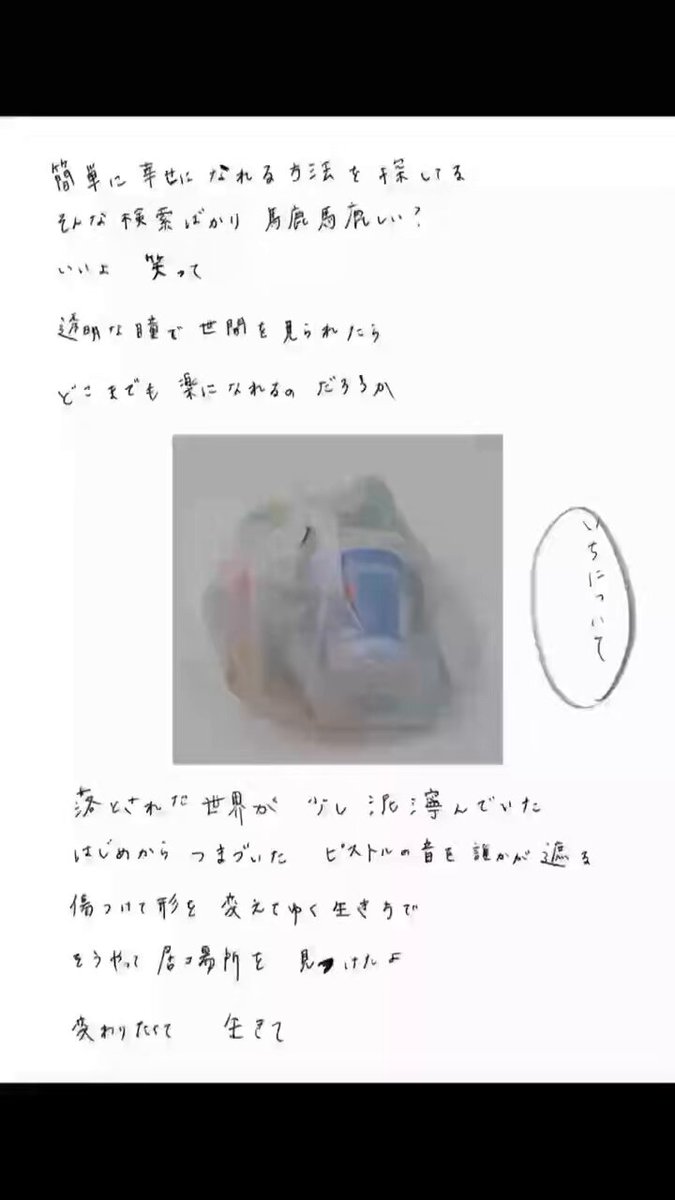 簡単に幸せになれる方法を探してる
そんな検索ばかり 馬鹿馬鹿しい?
いいよ 笑って
透明な瞳で世間を見られたら
どこまでも楽になれるのだろうか
いちについて
落とされた世界が 少し泥濘んでいた
はじめから つまづいた ピストルの音を誰かが遮る
傷つけて形を変えてゆく生き方で
そうやって居場所を見つけたよ
変わりたくて 生きて